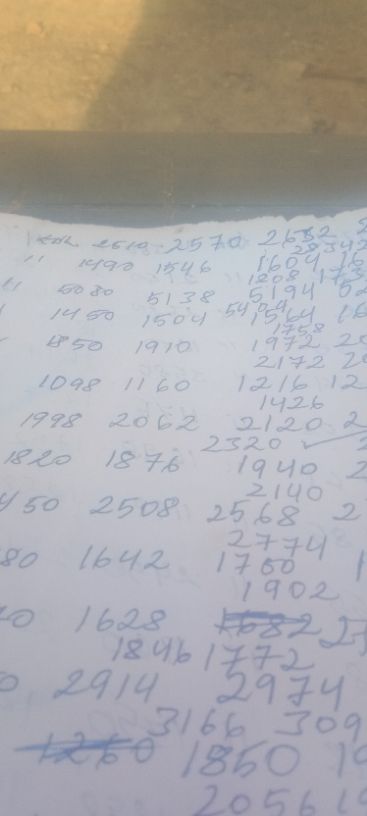 2510 2570 2632
2834
" 1490 1546 1604 16
1808 173
" 5080 5138 5194
5404
1450 1504 1564
1758
1850 1910 1972 20
2172 20
1098 1160 1216 12
1426
1998 2062 2120 2
2320 ✓
1820 1876 1940 2
2140
450 2508 2568 2
2774
80 1642 1700 1
1902
0 1628 1682 2
1846 1772
0 2914 2974
3166 309
1260 1850 19
2056 19